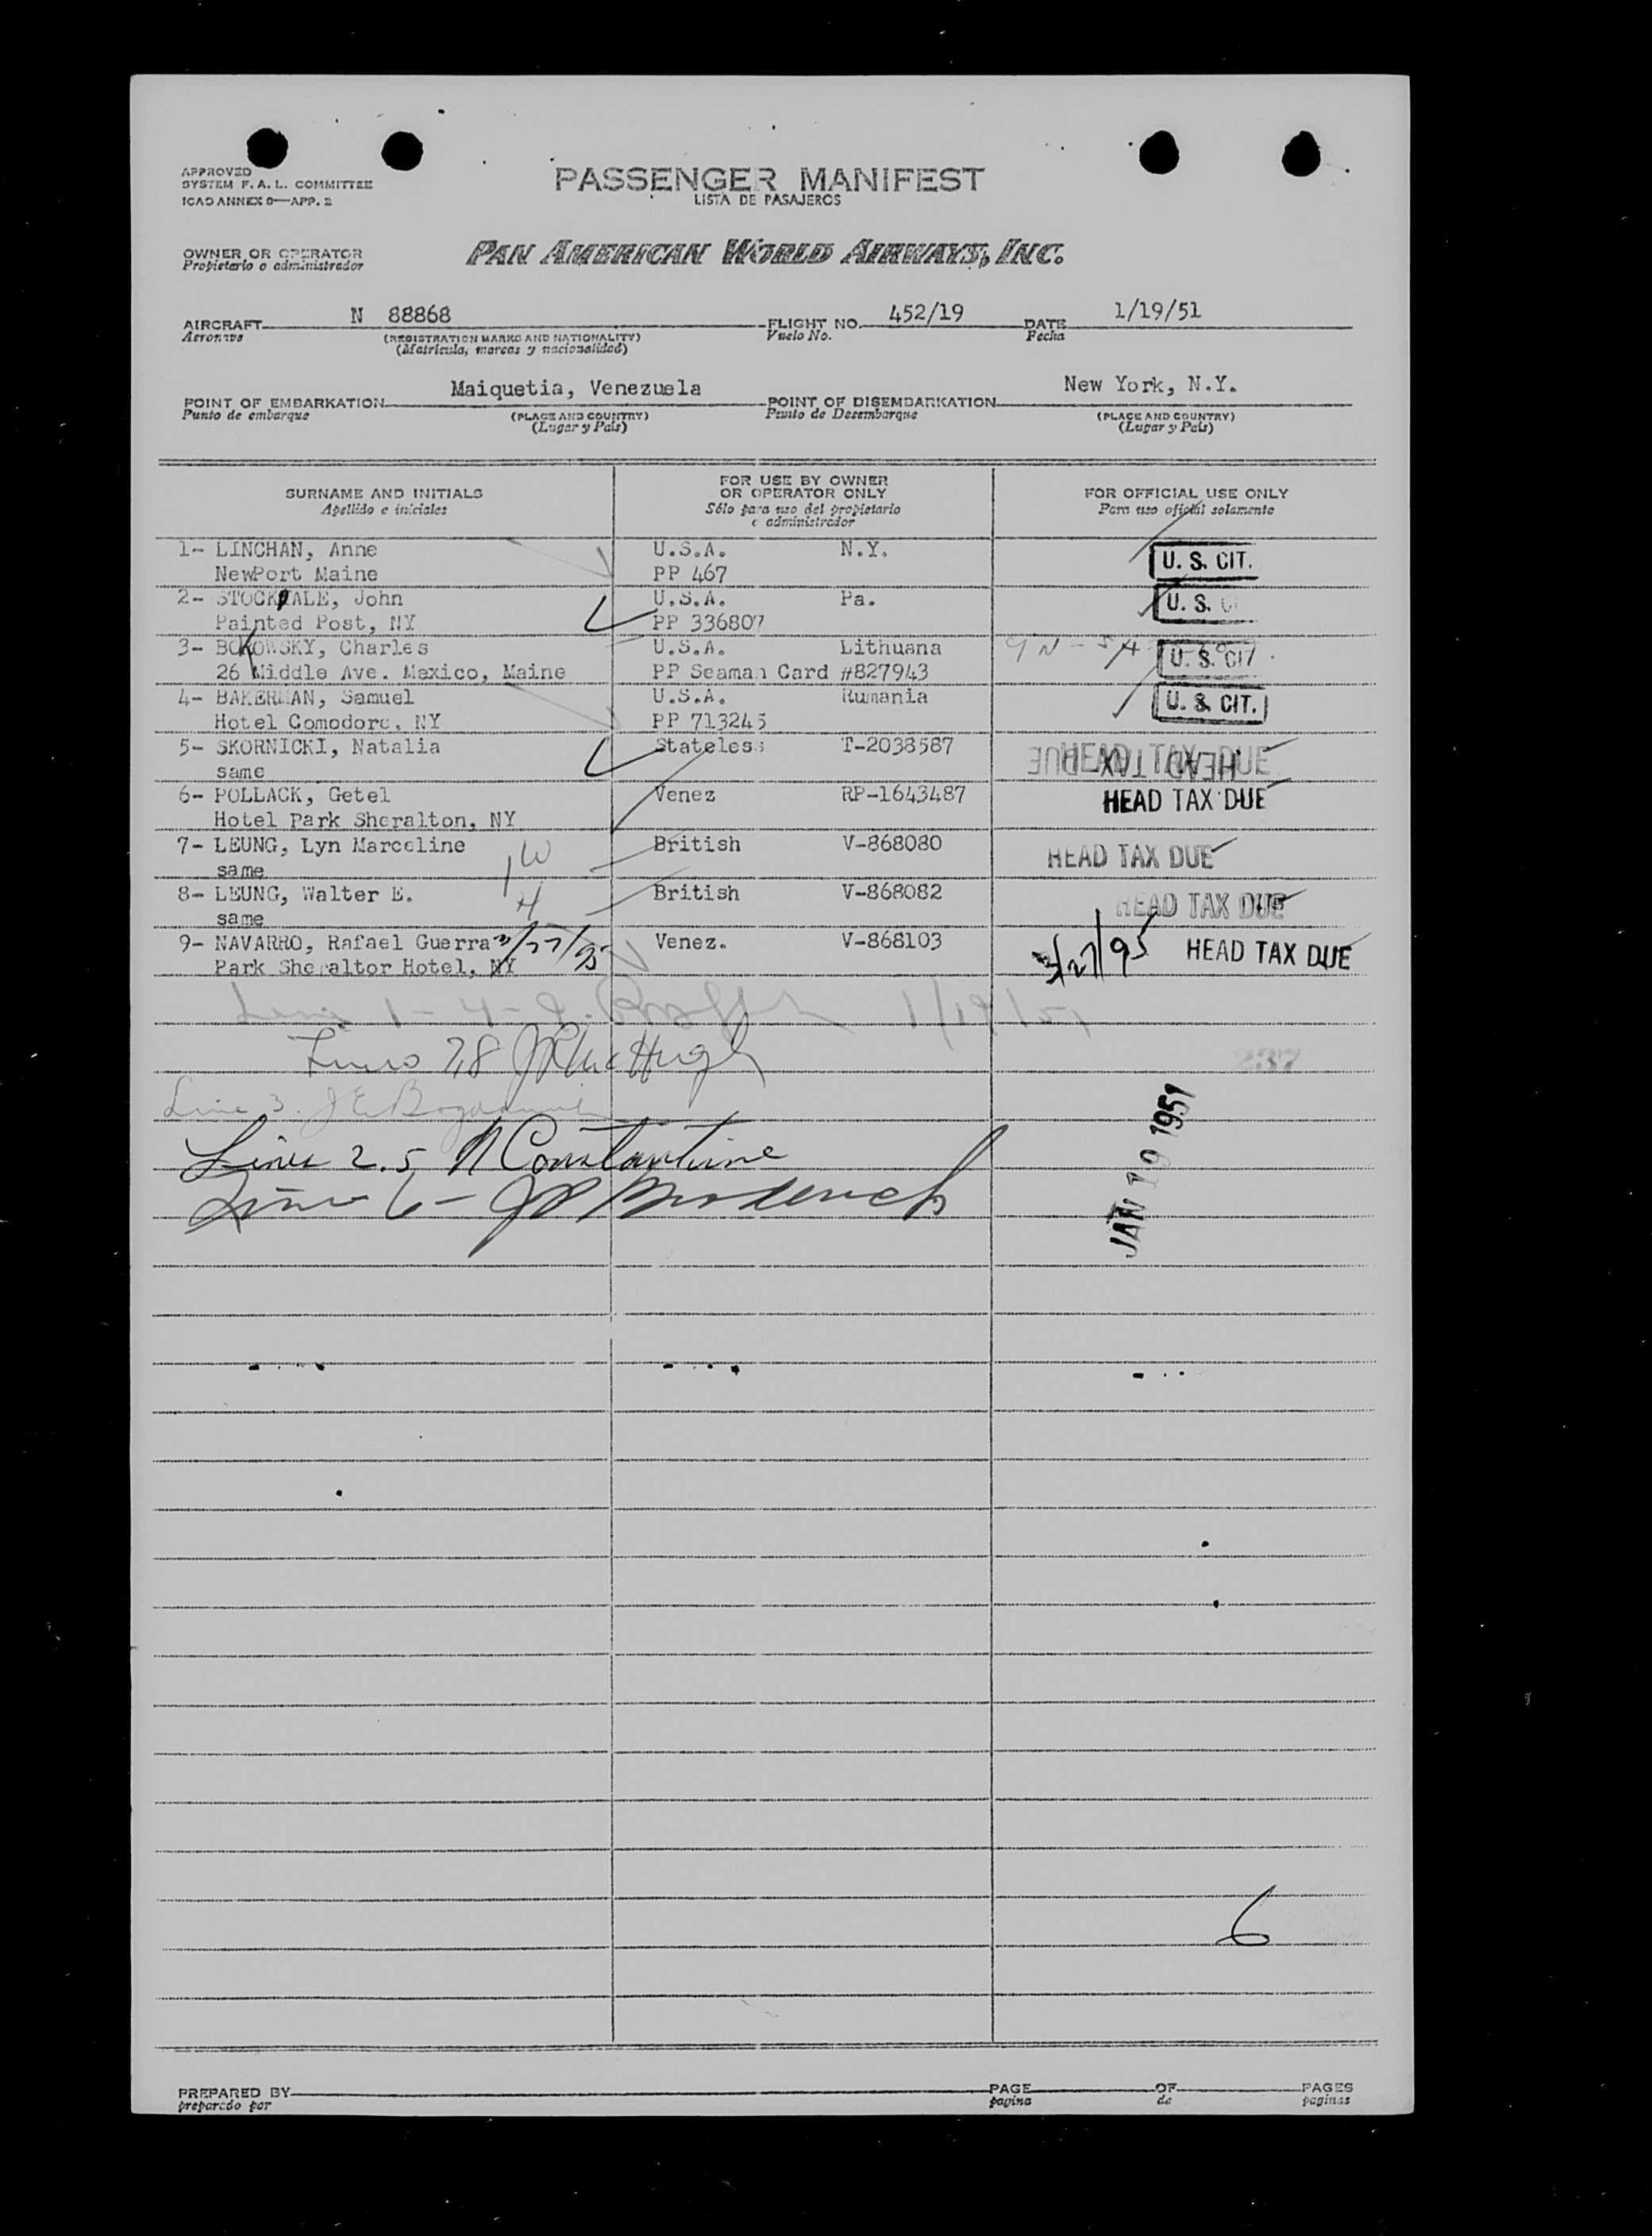 APPROVED
SYSTEM F. A. L. COMMITTEE
ICAO ANNEX 9—APP. 2
PASSENGER MANIFEST
LISTA DE PASAJEROS
OWNER OR OPERATOR
Propietario o administrador
PAN AMERICAN WORLD AIRWAYS, INC.
AIRCRAFT N 88868 FLIGHT NO. 452/19 DATE 1/19/51
Aeronave (REGISTRATION MARKS AND NATIONALITY) Vuelo No. Fecha
(Matrícula, marcas y nacionalidad)
POINT OF EMBARKATION Maiquetia, Venezuela POINT OF DISEMBARKATION New York, N.Y.
Punto de embarque (PLACE AND COUNTRY) Punto de Desembarque (PLACE AND COUNTRY)
(Lugar y País) (Lugar y País)
SURNAME AND INITIALS FOR USE BY OWNER OR OPERATOR ONLY FOR OFFICIAL USE ONLY
Apellido e iniciales Sólo para uso del propietario o administrador Para uso oficial solamente
1- LINCHAN, Anne U.S.A. N.Y. U. S. CIT.
NewPort Maine PP 467
2- STOCKDALE, John U.S.A. Pa. U. S.
Painted Post, NY PP 336807
3- BOKOWSKY, Charles U.S.A. Lithuana U. S. CIT.
26 Middle Ave. Mexico, Maine PP Seaman Card #827943
4- BAKERMAN, Samuel U.S.A. Rumania U. S. CIT.
Hotel Comodore, NY PP 713245
5- SKORNICKI, Natalia Stateless T-2038587 HEAD TAX DUE HEAD TAX DUE
same
6- POLLACK, Getel Venez RP-1643487 HEAD TAX DUE
Hotel Park Sheralton, NY
7- LEUNG, Lyn Marceline 1W British V-868080 HEAD TAX DUE
same
8- LEUNG, Walter E. H British V-868082 HEAD TAX DUE
same
9- NAVARRO, Rafael Guerra 3/27/95 Venez. V-868103 3/27/95 HEAD TAX DUE
Park Sheraltor Hotel, NY
Lines 7,8 JP McHugh
237
Line 3.
Lines 2.5 N Constantine
Line 6-
JAN 19 1951
6
PREPARED BY PAGE OF PAGES
preparado por pagina de paginas